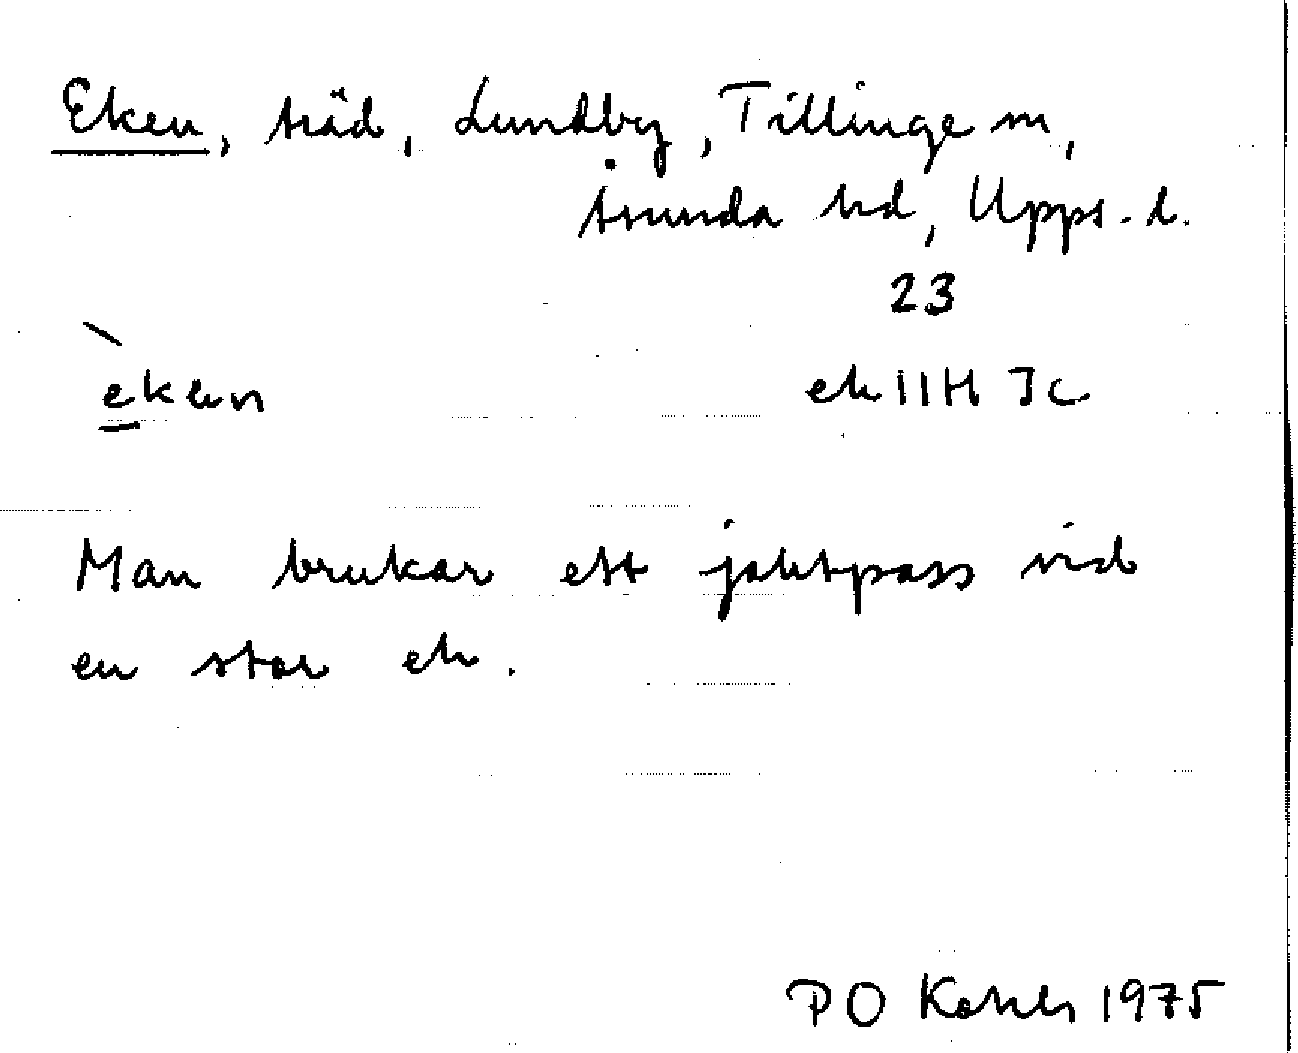 Eken, träd, Lundby, Tillinge sn,
Åsunda hd, Upps. l.
23
èken
ek 11H 7c
Man brukar ett jaktpass vid
en stor ek.
PO 1975